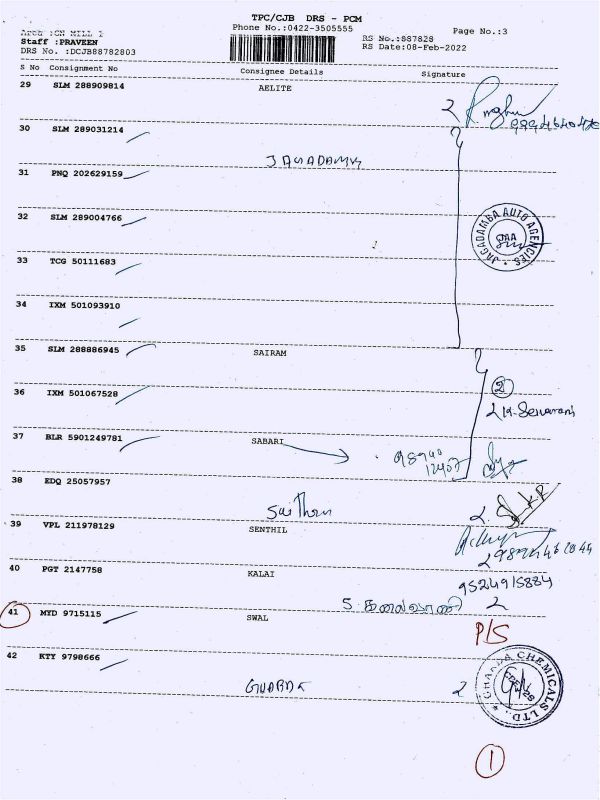 TPC/CJB DRS - PCM
Phone No.:0422-3505555
Page No.:3
Area :GN MILL 1
RS No.:887828
Staff :PRAVEEN
RS Date:08-Feb-2022
DRS No. :DCJB88782803
S No Consignment No Consignee Details Signature
29 SLM 288909814 AELITE
2
30 SLM 289031214
JAGADAMBA
31 PNQ 202629159
32 SLM 289004766
JAGADAMBA AUTO AGENCIES
JAA
33 TCG 50111683
34 IXM 501093910
35 SLM 288886945 SAIRAM
36 IXM 501067528
2
37 BLR 5901249781 SABARI
38 EDQ 25057957
39 VPL 211978129 SENTHIL
40 PGT 2147758 KALAI
9524915884
S. கலைவாணி 2
41 MYD 9715115 SWAL
P/S
42 KTY 9798666
2
CHEMICALS LTD.,
1